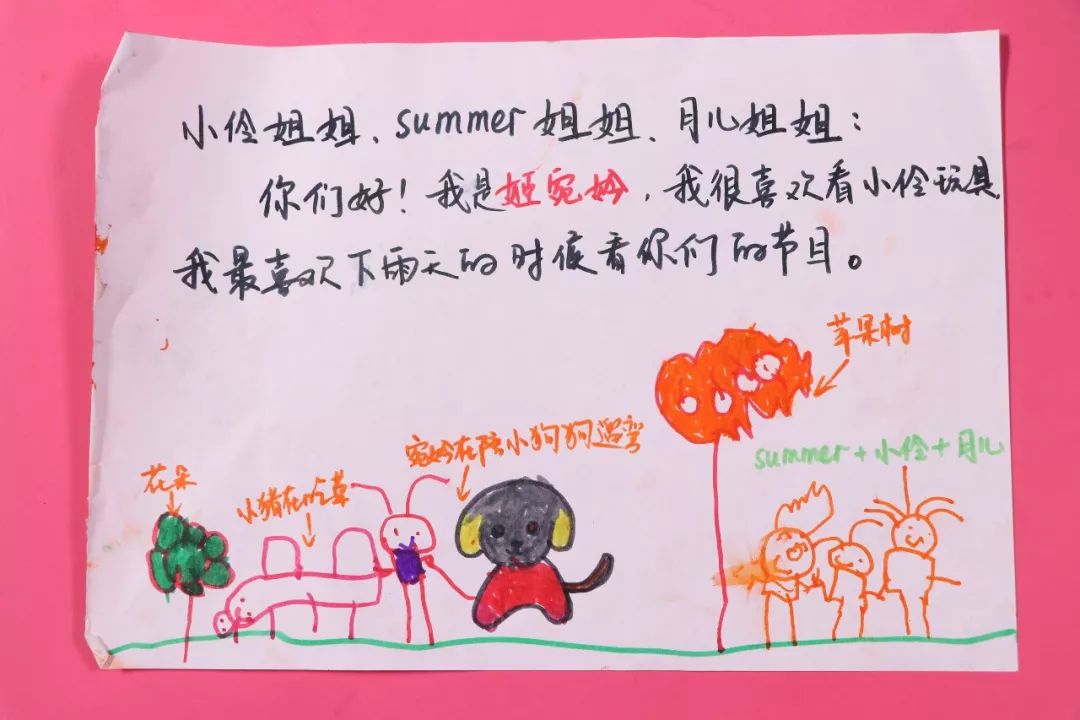 小伶姐姐、summer姐姐、月儿姐姐：
你们好！我是姬宛妙，我很喜欢看小伶玩具
我最喜欢下雨天的时候看你们的节目。
苹果树
宛妙在陪小狗狗遛弯
summer+小伶+月儿
花朵
小猪在吃草